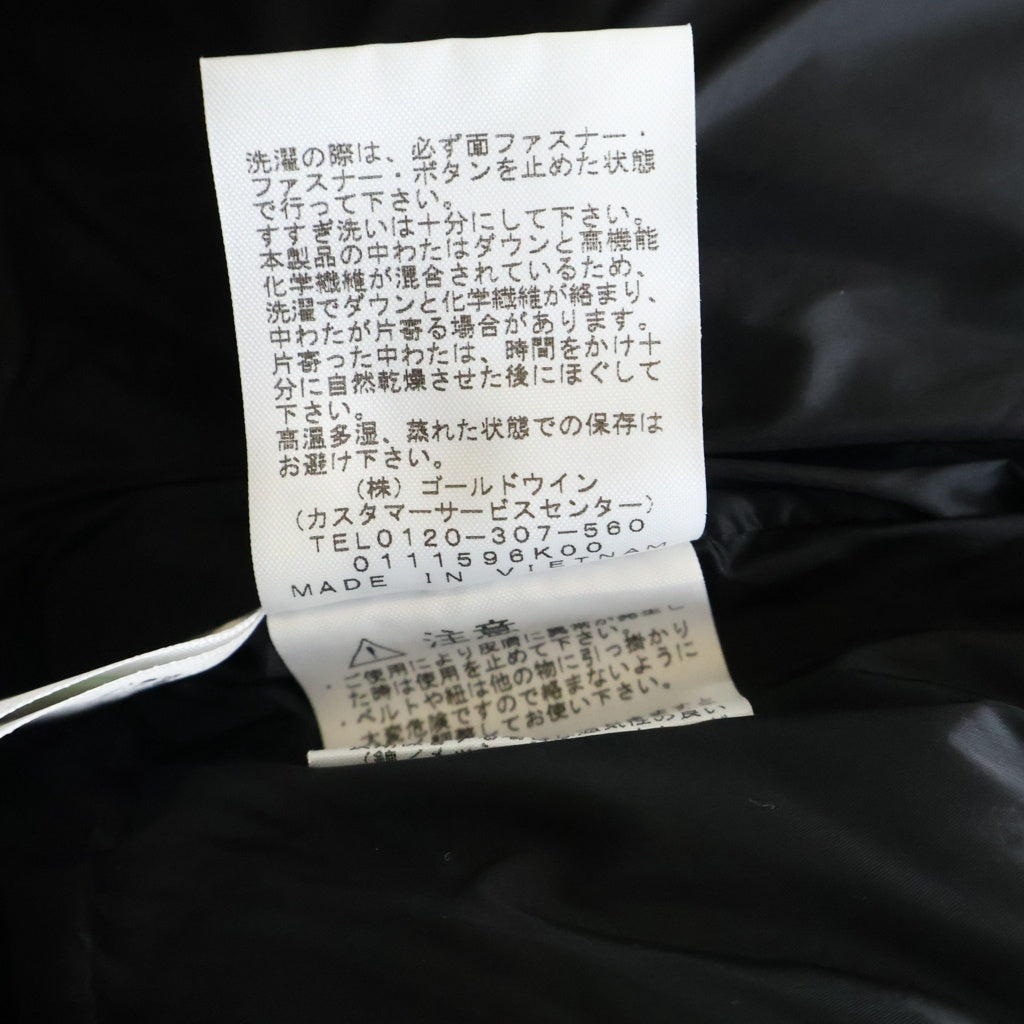 洗濯の際は、必ず面ファスナー・
ファスナー・ボタンを止めた状態
で行って下さい。
すすぎ洗いは十分にして下さい。
本製品の中わたはダウンと高機能
化学繊維が混合されているため、
洗濯でダウンと化学繊維が絡まり、
中わたが片寄る場合があります。
片寄った中わたは、時間をかけ十
分に自然乾燥させた後にほぐして
下さい。
高温多湿、蒸れた状態での保存は
お避け下さい。
(株)ゴールドウイン
(カスタマーサービスセンター)
TEL0120-307-560
0111596K00
MADE IN VIETNAM
注意
ご使用により皮膚に異常が発生し
た時は使用を止めて下さい。
・ベルトや紐は他の物に引っ掛かり
大変危険ですので絡まないように
してお使い下さい。
の良い